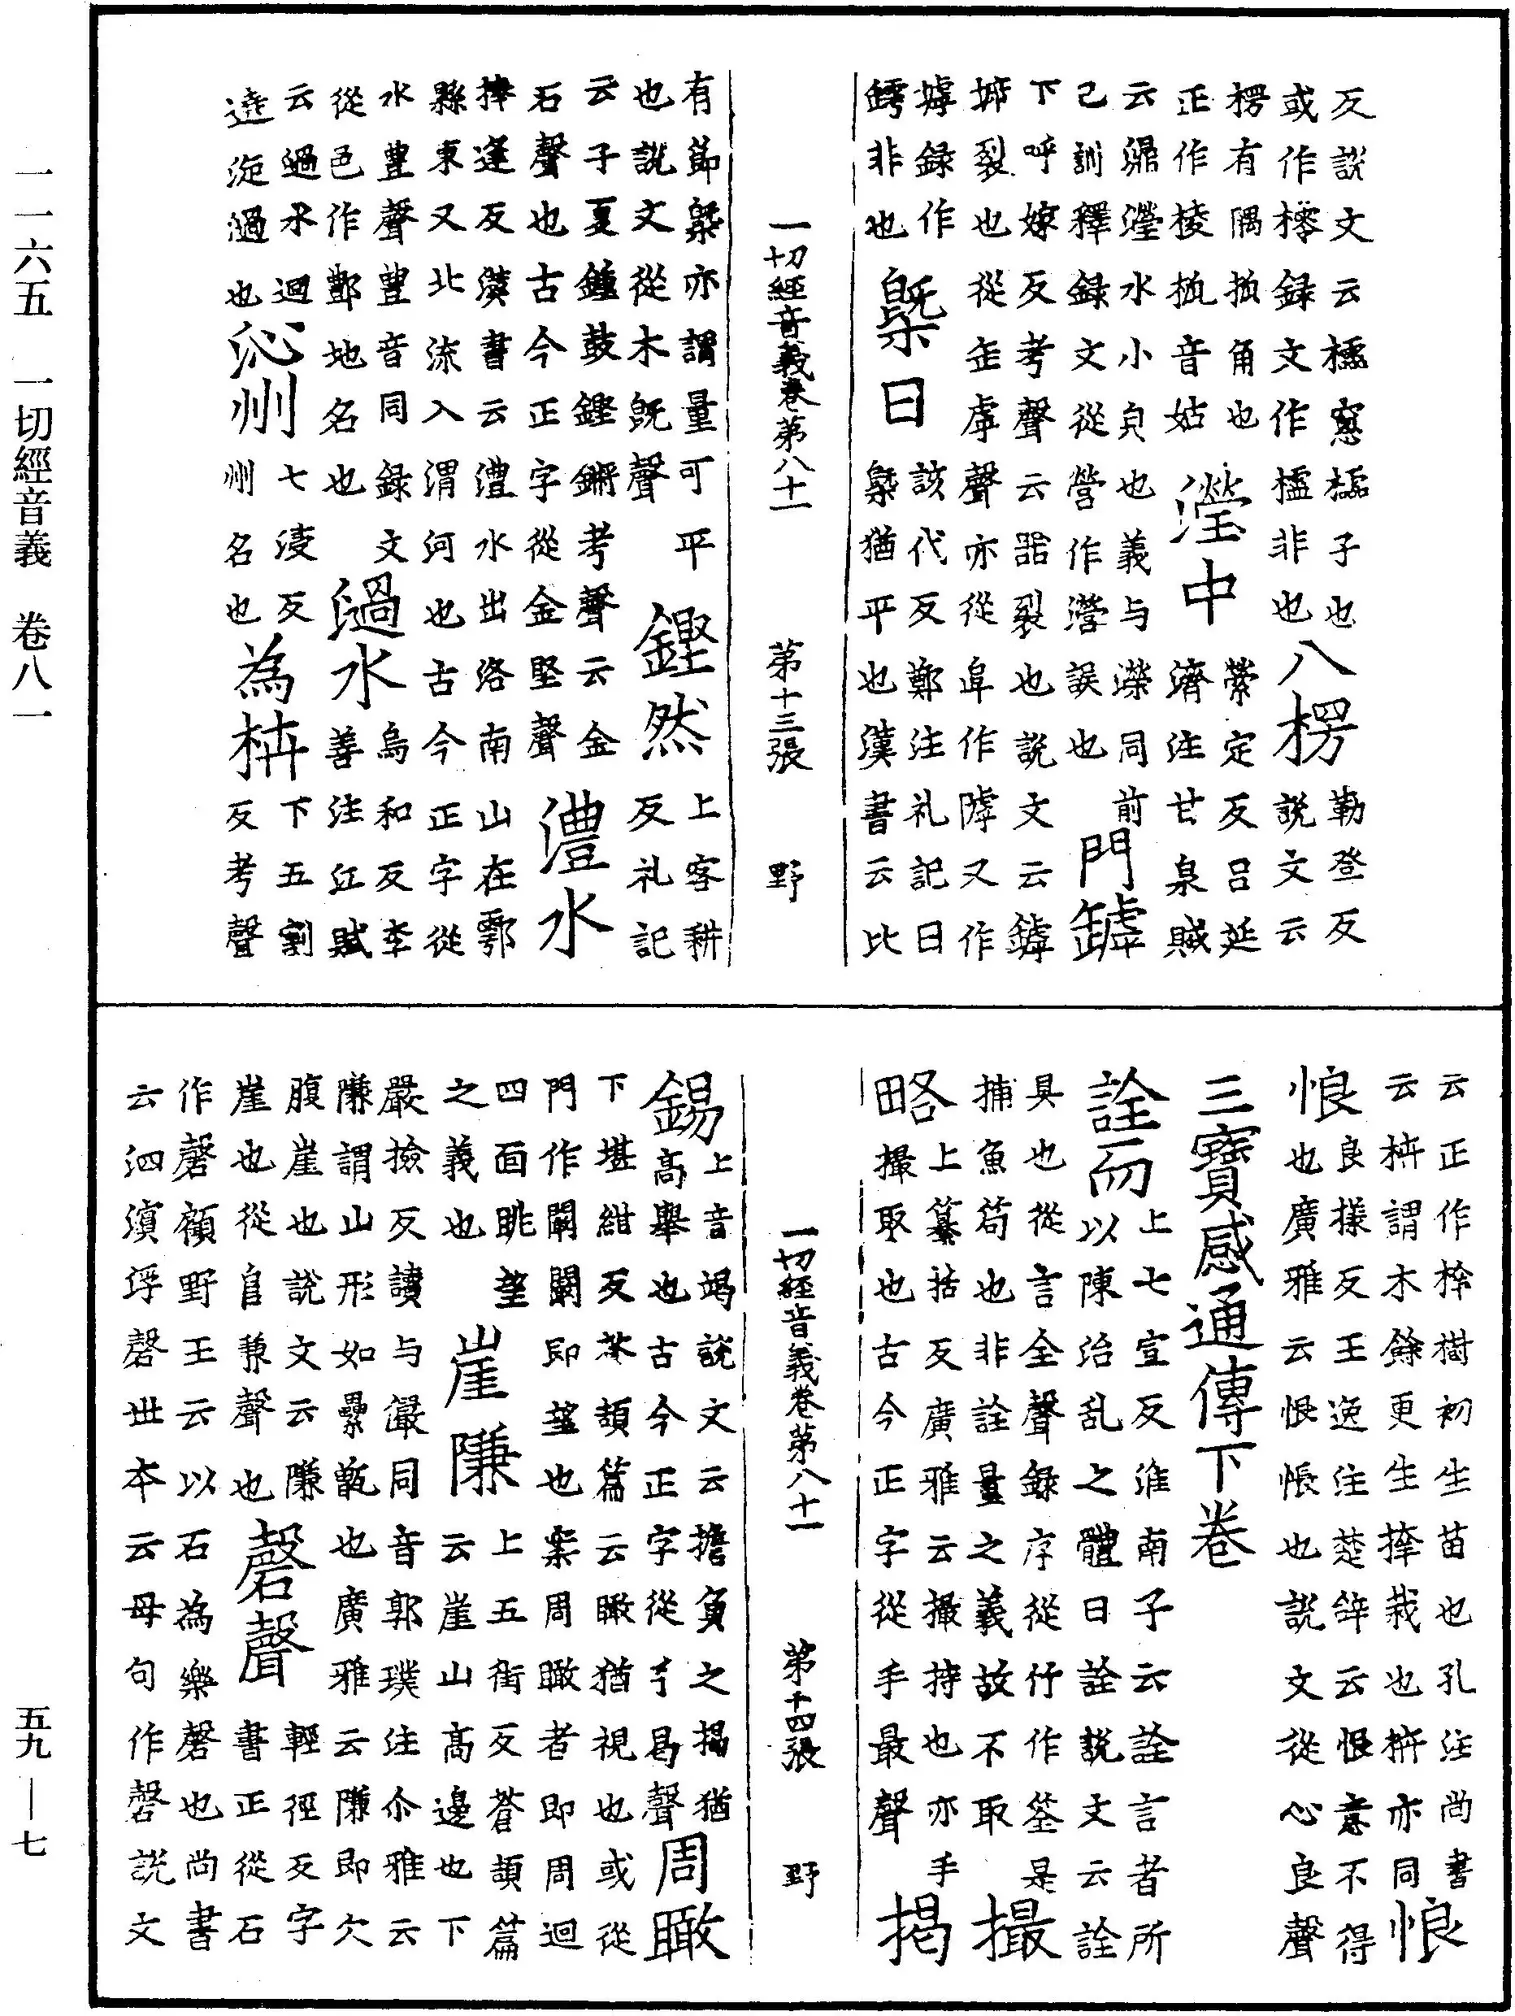 一一六五 一切經音義 卷八一
五九—七
反說文云櫺窻櫺子也
或作櫺錄文作櫨非也
八楞
勒登反
說文云
楞有隅㧓角也
正作棱㧓音姑
瀅中
縈定反呂延
濟注甘泉賦
云瀰瀅水小皃也義与濚同前
己訓釋錄文從營作瀯誤也
門罅
下呼嫁反考聲云㗤裂也說文云罅
㙤裂也從缶虖聲亦從阜作㙤又作
㙤錄作
鏬非也
槩日
該代反鄭注礼記曰
槩猶平也漢書云比
一切經音義卷第八十一
第十三張
野
有節槩亦謂量可平
也說文從木旣聲
鏗然
上客耕
反礼記
云子夏鍾鼓鏗鏘考聲云金
石聲也古今正字從金堅聲
澧水
捧逢反漢書云澧水出洛南山在鄠
縣東又北流入渭河也古今正字從
水豊聲豊音同錄文
從邑作酆地名也
濄水
烏和反反李
善注江賦
云過水迴
遶㳬過也
沁州
七浸反
州名也
為枿
下五割
反考聲
云正作㮆樹初生苗也孔注尚書
云枿謂木餘更生㮆栽也枿亦同
悢
悢
良樣反王逸注楚辞云悢意不得
也廣雅云悢悵也說文從心良聲
三寶感通傳下卷
詮而
上七宣反淮南子云詮言者所
以陳治乱之體曰詮說文云詮
具也從言全聲錄序從竹作筌是
捕魚笱也非詮量之義故不取
撮
略
上纂括反廣雅云撮持也亦手
撮取也古今正字從手最聲
揭
一切經音義卷第八十一
第十四張
野
錫
上音竭說文云擔負之揭猶
高舉也古今正字從扌曷聲
周瞰
下堪紺反蒼頡篇云瞰猶視也或從
門作闞闞即望也案周瞰者即周迴
四面眺望
之義也
崖隒
上五街反蒼頡篇
云崖山高邊也下
嚴撿反讀与儼同音郭璞注尒雅云
隒謂山形如累甑也廣雅云隒即欠
腹崖也說文云隒
崖也從𨸏兼聲也
磬聲
輕徑反字
書正從石
作磬顧野王云以石為樂磬也尚書
云泗濱浮磬世本云母句作磬說文